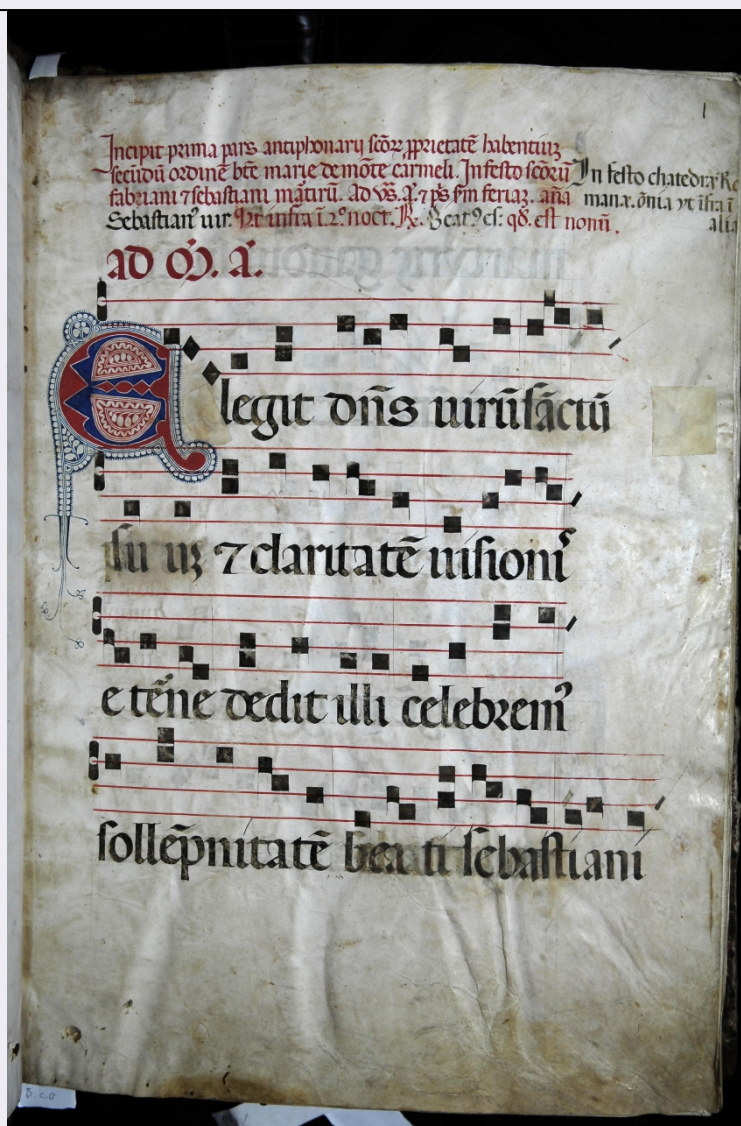 1
Incipit prima pars antiphonarij scõꝝ ꝓprietatẽ habentiuʒ
secũdũ ordinẽ btẽ marie de mõte carmeli. In festo scõꝝũ
fabriani ⁊ sebastiani mãtirũ. Ad vs̃. añ. ⁊ p̃s s̃m feriaʒ. aña
Sebastianꝰ uir. Vt infra ĩ. 2º noct. ℟. Beatꝰ es: qð. est nonũ.
In festo chatedrȩ Ro
manȩ. õnia vt ĩfra ĩ
alia
ad M̃. A͂.
Elegit dñs uirũ sãctũ
su uʒ ⁊ claritatẽ uisionıꝰ
e tẽne dedit illi celebremꝰ
sollẽpnitatẽ bea ti sebastiani
B.c.B